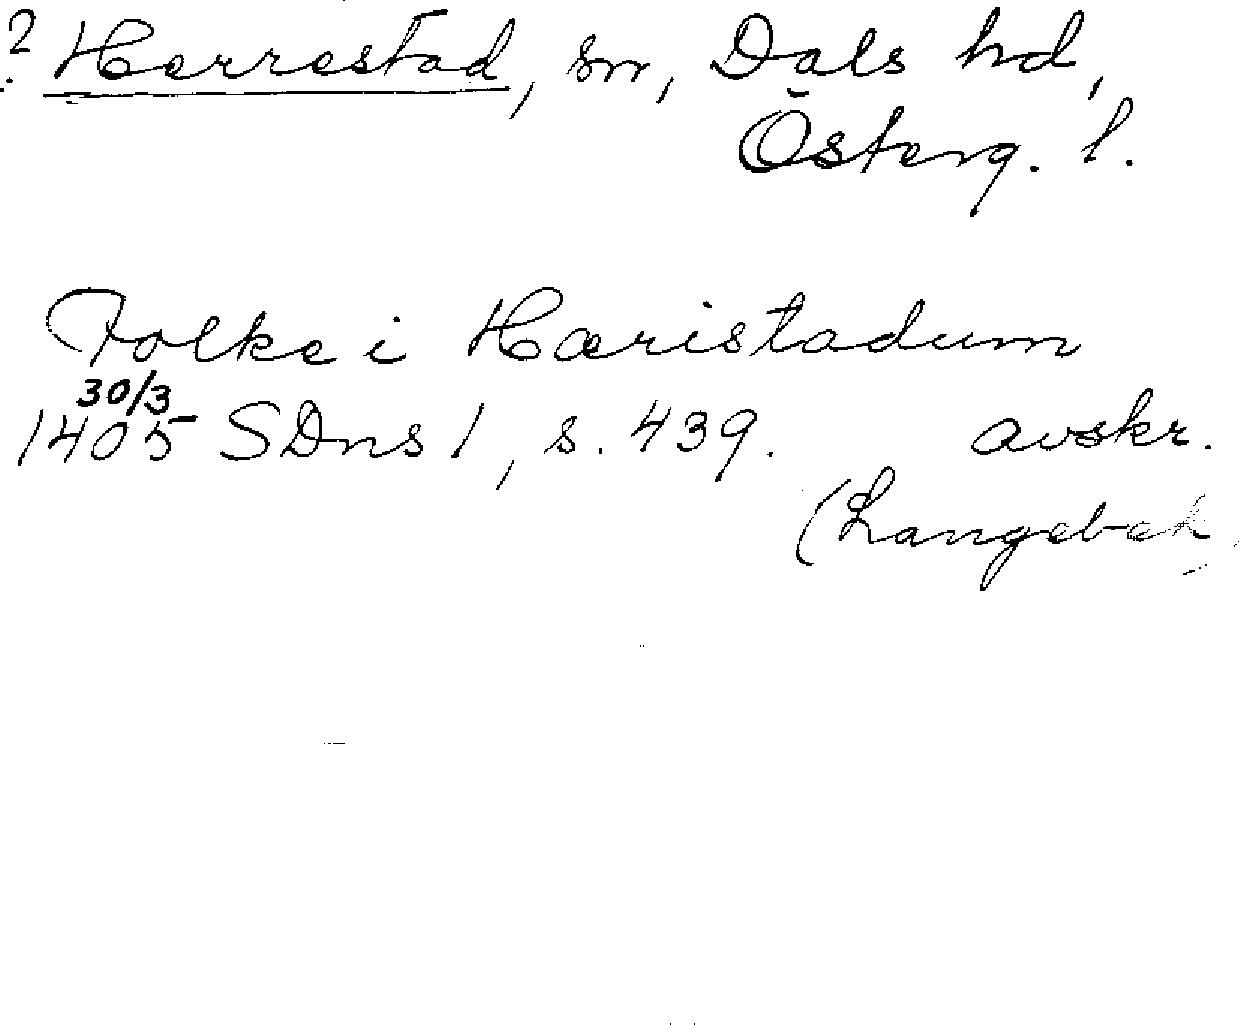 ? Herrestad, sn, Dals hd,
Österg. l.
Folke i Hæristadum
30/3
1405 SDns 1, s. 439. avskr.
(Langebek